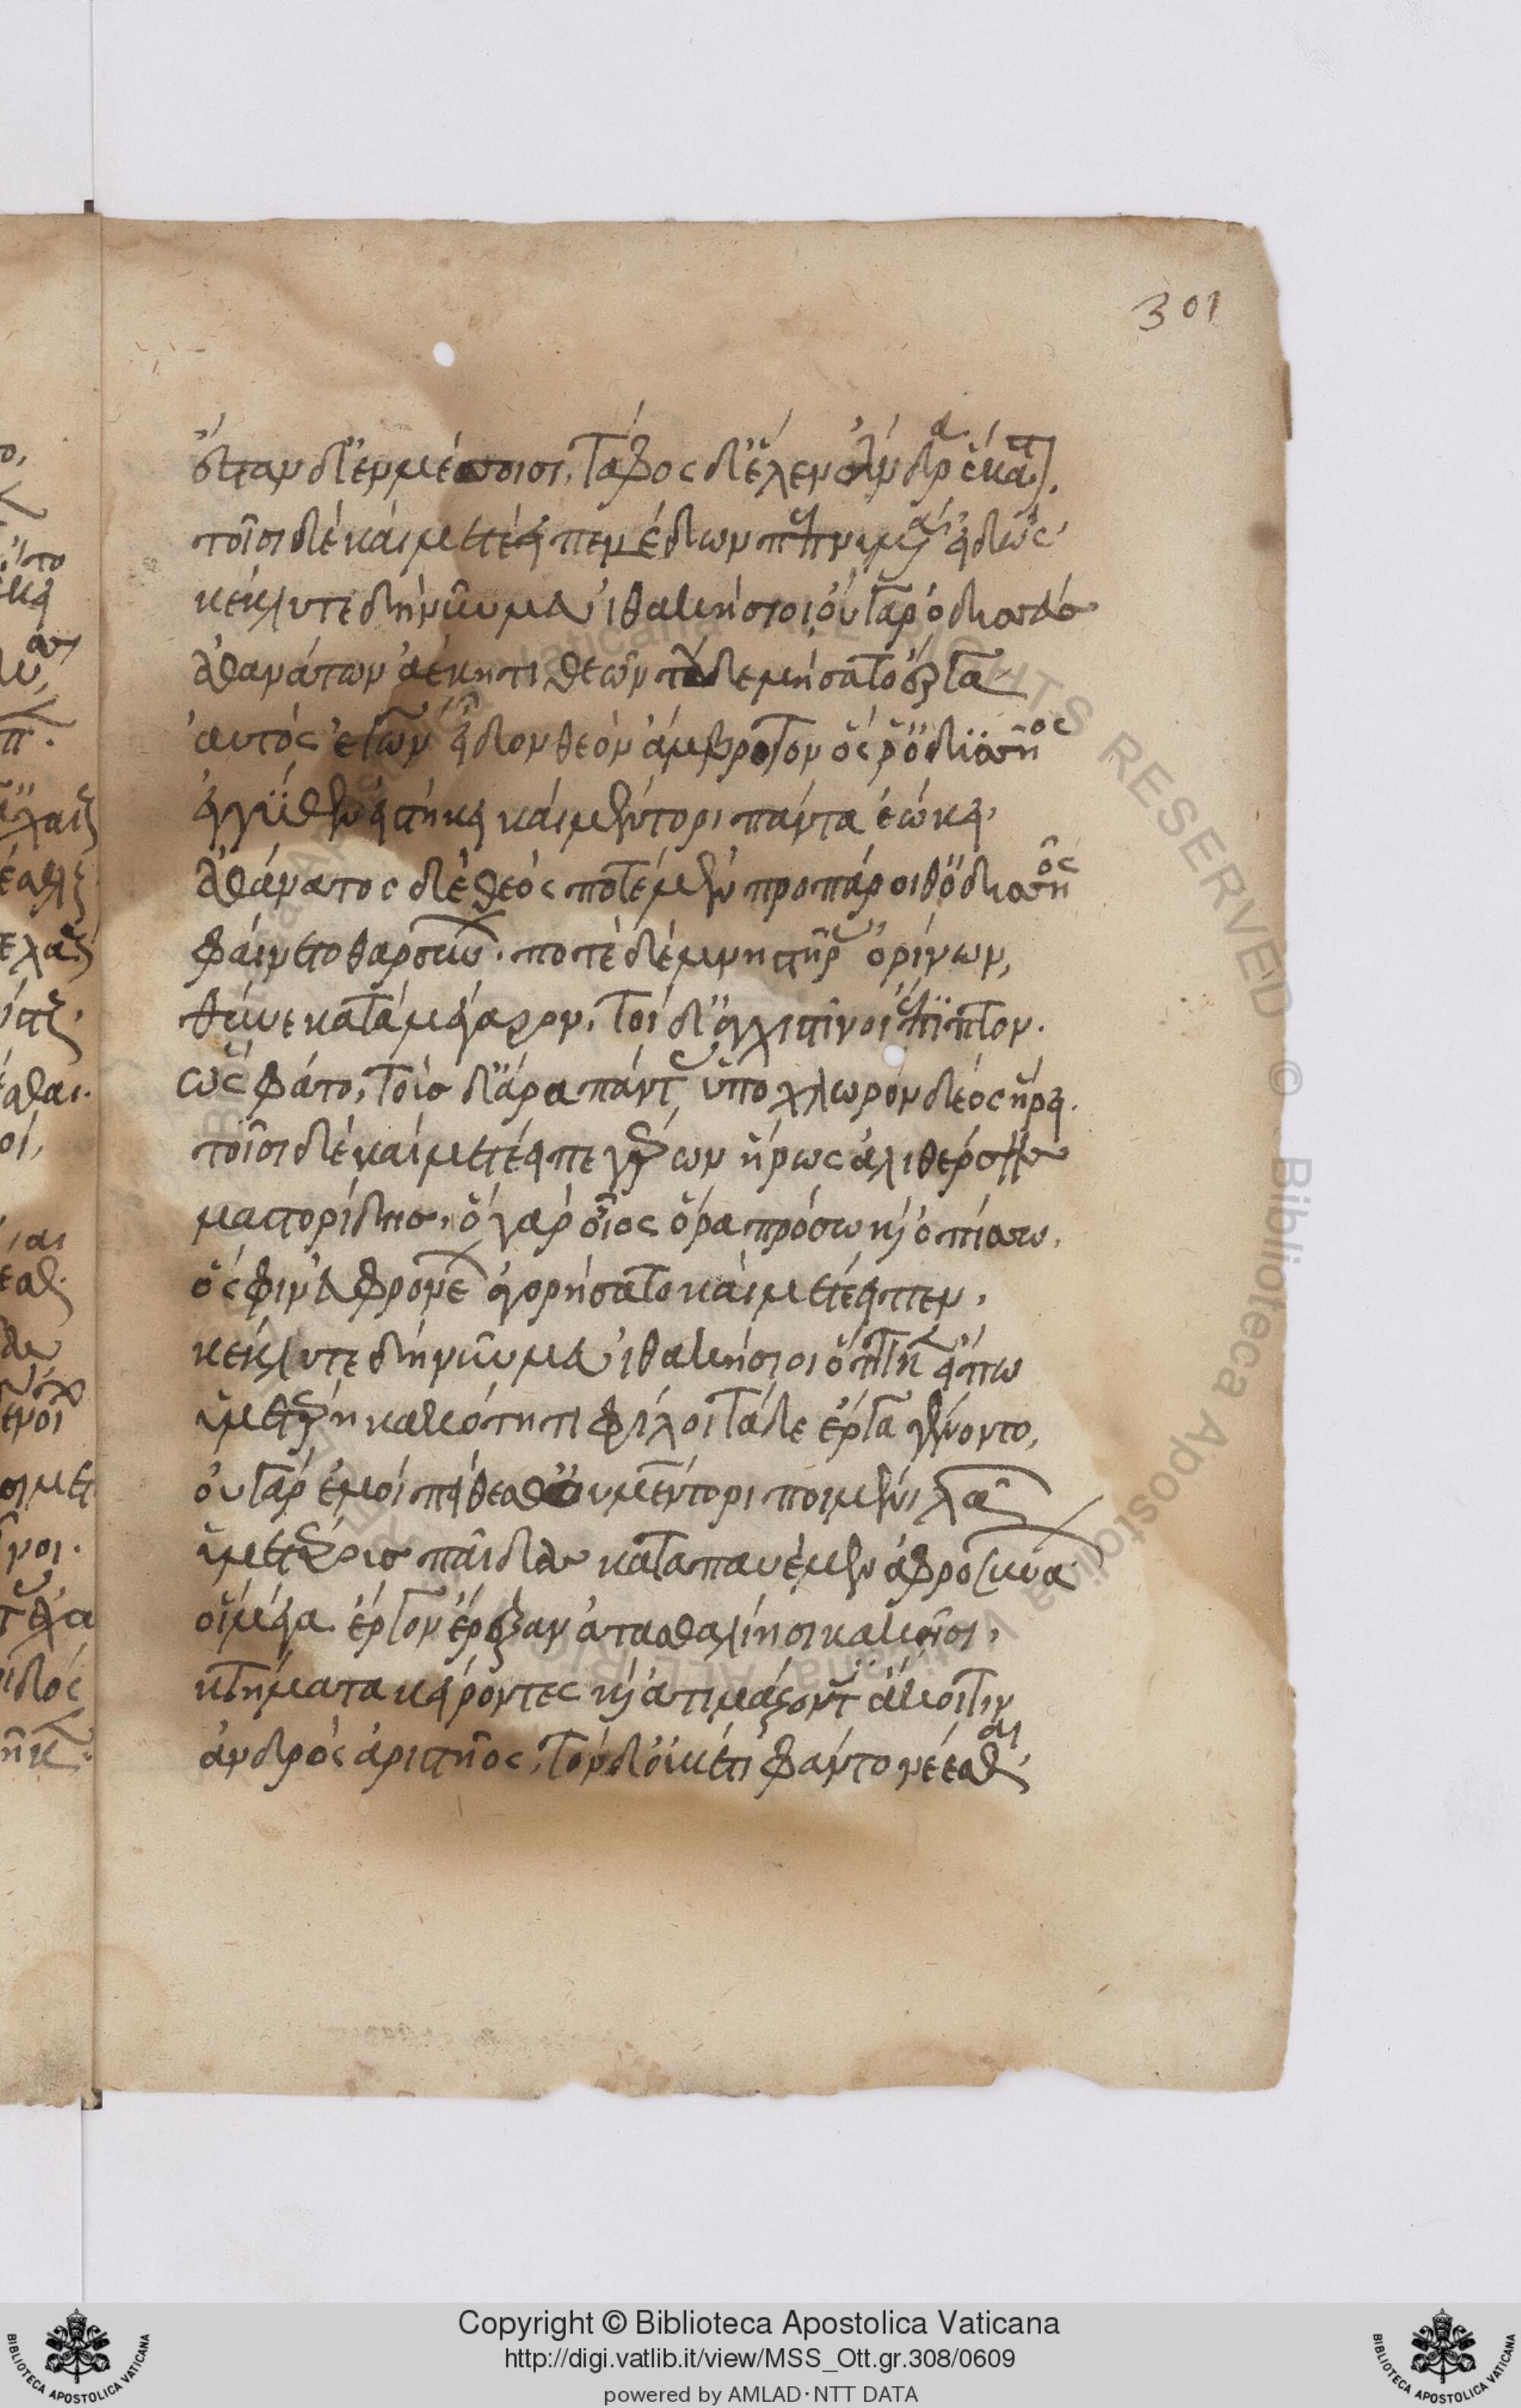 301
ἔσταν δ' ἐν μέσοισι, τάφος δ' ἕλεν ἄνδρα ἕκαστον.
τοῖσι δὲ καὶ μετέειπεν Μέδων πεπνυμένα εἰδώς·
κέκλυτε δὴ νῦν μευ ἰθακήσιοι, οὐ γὰρ ὀδυσσεὺς
ἀθανάτων ἀέκητι θεῶν τάδε μήσατο ἔργα
αὐτὸς ἐγὼν εἶδον θεὸν ἄμβροτον ὅς ῥ' ὀδυσῆος
ἐγγύθεν εἱστήκει καὶ μέντορι πάντα ἐώκει.
ἀθάνατος δὲ θεὸς ποτὲ μὲν προπάροιθ' ὀδυσῆος
φαίνετο θαρσύνων. ποτὲ δὲ μνηστῆρας ὀρίνων,
θῦνε κατὰ μέγαρον. τοὶ δ' ἀγχιστῖνοι ἔπιπτον.
ὣς φάτο, τοὺς δ' ἄρα πάντας ὑπὸ χλωρὸν δέος ᾕρει.
τοῖσι δὲ καὶ μετέειπε γέρων ἥρως ἁλιθέρσης
μαστορίδης. ὃ γὰρ οἶος ὅρα πρόσω καὶ ὀπίσσω.
ὅ σφιν ἐυφρονέων ἀγορήσατο καὶ μετέειπεν.
κέκλυτε δὴ νῦν μευ ἰθακήσιοι ὅττι κεν εἴπω
ὑμετέρῃ κακότητι φίλοι τάδε ἔργα γένοντο,
οὐ γὰρ ἐμοὶ πείθεσθ' οὐ μέντορι ποιμένι λαῶν
ὑμετέρους παῖδας καταπαυέμεν ἀφροσυνάων
οἳ μέγα ἔργον ἔρεξαν ἀτασθαλίῃσι κακῇσι,
κτήματα κείροντες καὶ ἀτιμάζοντες ἄκοιτιν
ἀνδρὸς ἀριστῆος. τὸν δ' οὐκέτι φάντο νέεσθαι
Copyright © Biblioteca Apostolica Vaticana
http://digi.vatlib.it/view/MSS_Ott.gr.308/0609
powered by AMLAD·NTT DATA